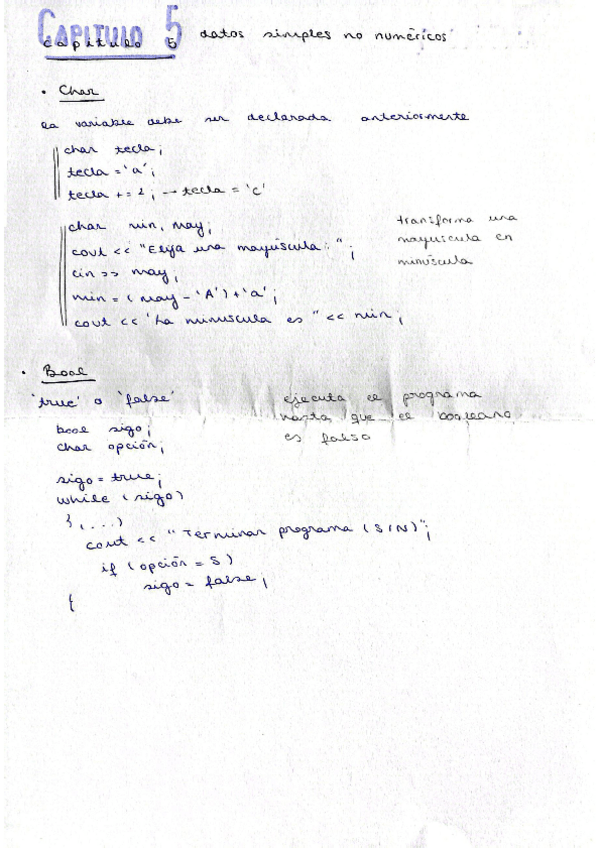 CAPITULO 5 datos simples no numéricos
capitulo 5
• Char
la variable debe ser declarada anteriormente
char tecla;
tecla = 'a';
tecla += 2; → tecla = 'c'
char min, may;
cout << "Elija una mayúscula: ";
cin >> may;
min = (may - 'A') + 'a';
cout << "La minuscula es " << min;
transforma una
mayuscula en
minúscula
• Bool
'true' o 'false'
bool sigo;
char opción;
sigo = true;
while (sigo)
} (...)
cout << "Terminar programa (S/N)";
if (opción = S)
sigo = false;
{
ejecuta el programa
hasta que el booleano
es falso